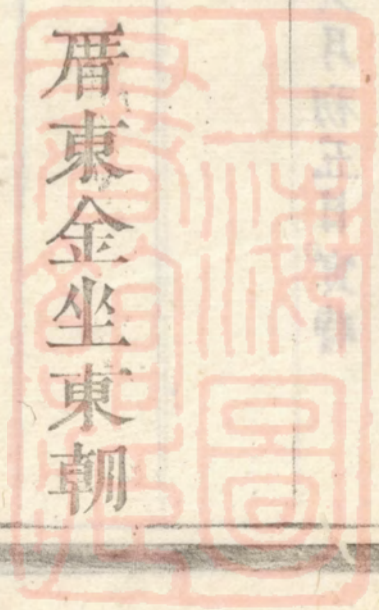 厝東金坐東朝
上海圖
書館藏